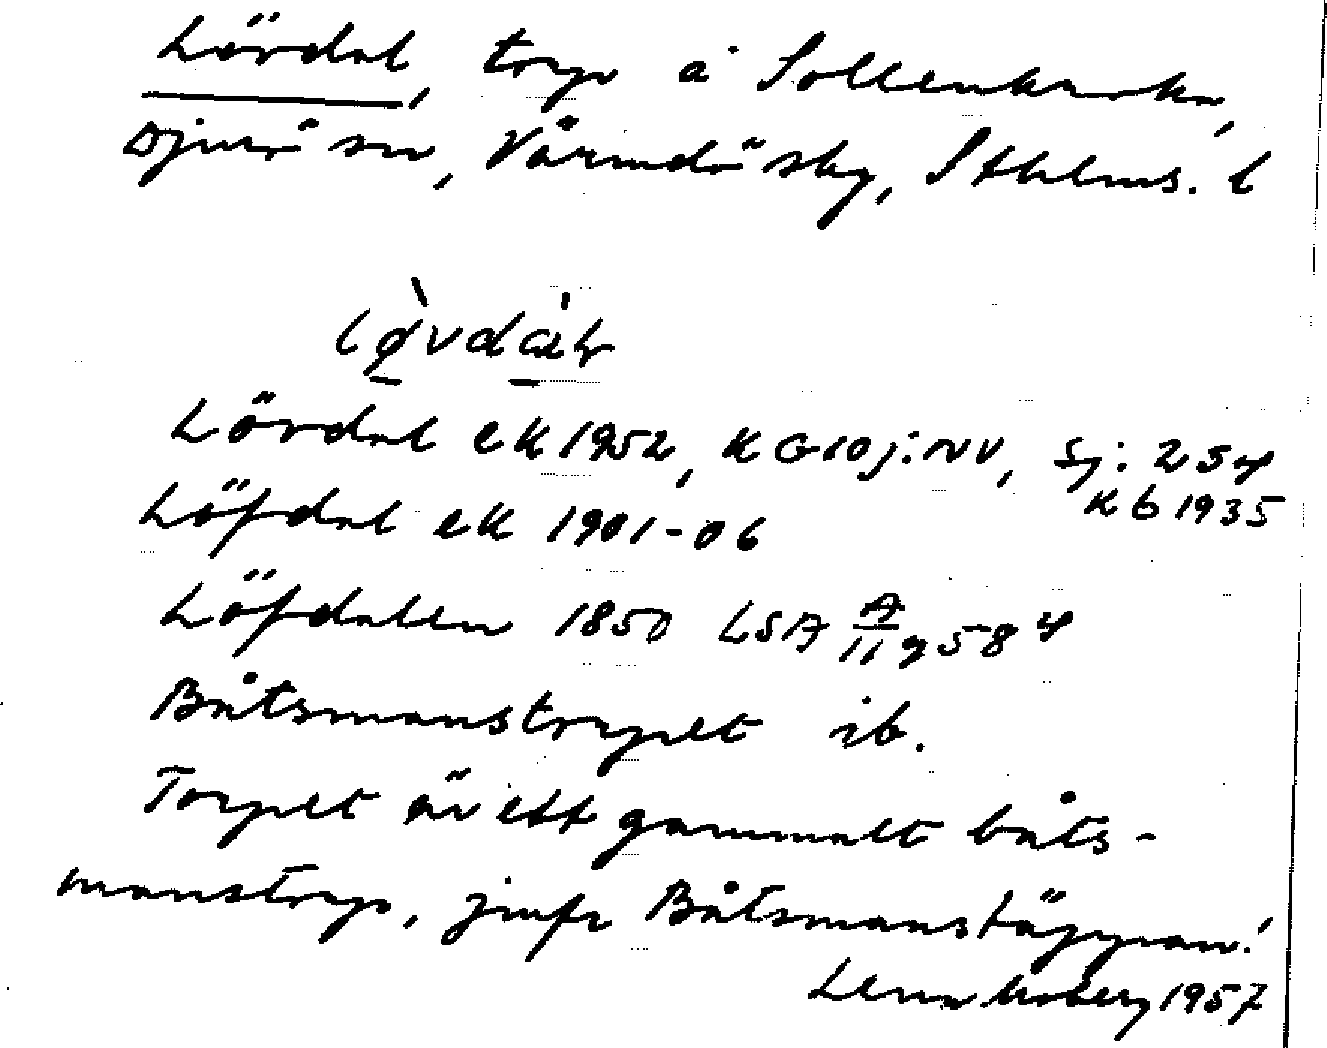 Lövdal, torp å Sollenkroka,
Djurö sn, Värmdö skg, Sthlms. l
Lövdal ek 1952, K G 10 j: NV, Sj: 254
K b 1935
Löfdal ek 1901-06
Löfdalen 1850 LSA A/11 g 58 4
Båtsmanstorpet ib.
Torpet är ett gammalt båts-
manstorp, jmfr Båtsmanstäppan!
Lena Moberg 1957